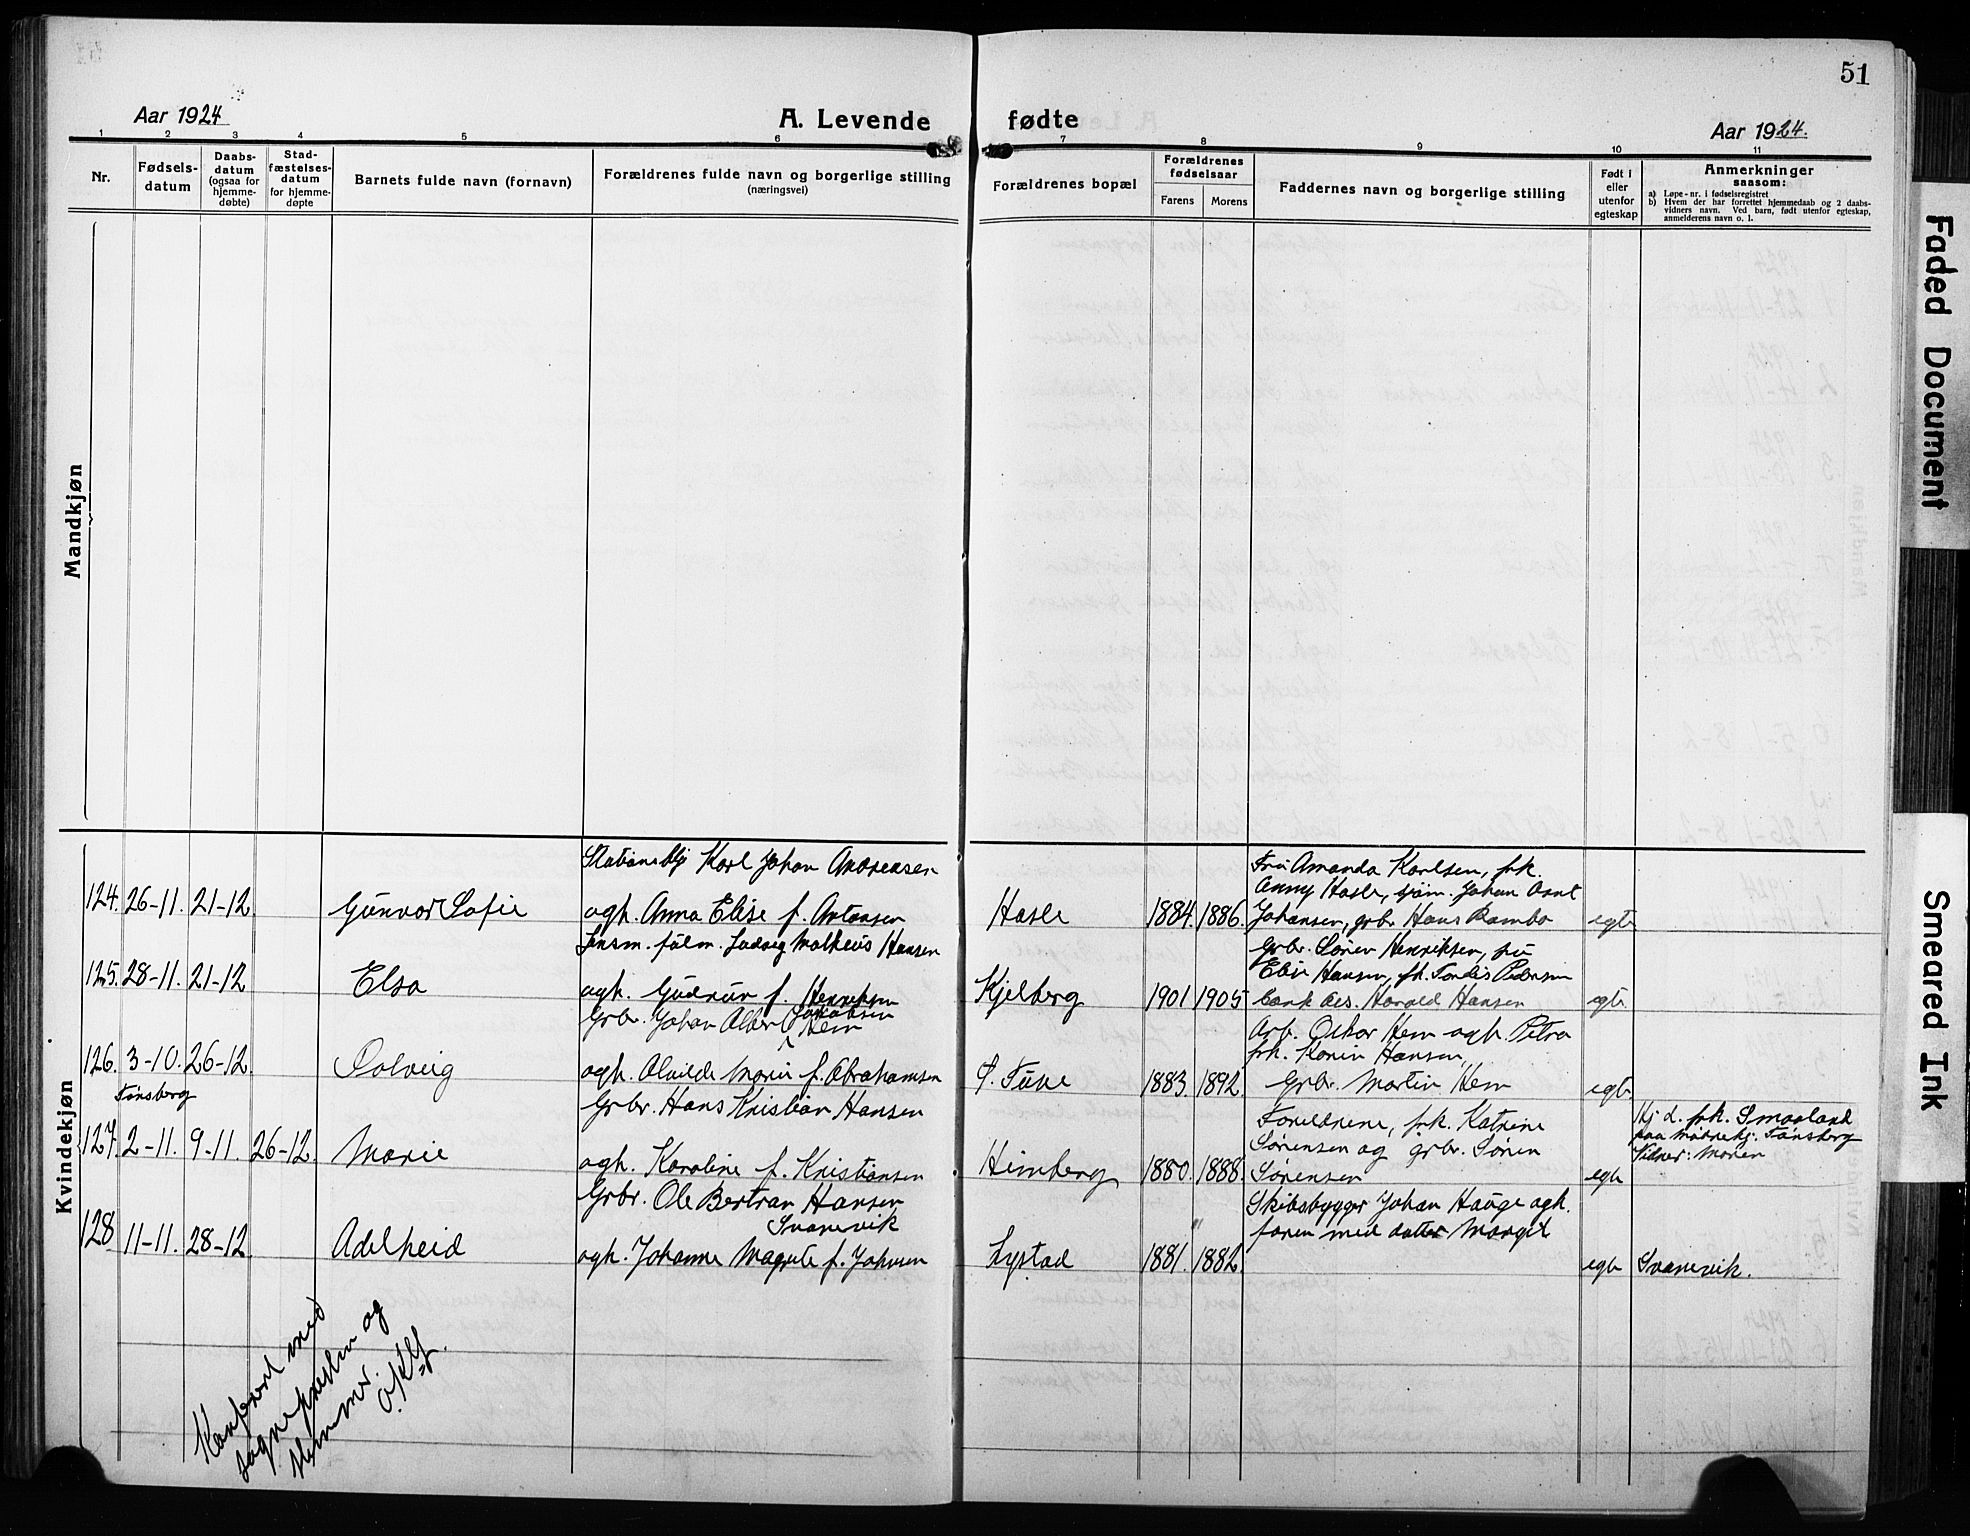 51
Aar 1924
A. Levende fødte
Aar 1924.
1 2 3 4 5 6 7 8 9 10 11
Nr.
Fødsels-
datum
Daabs-
datum
(ogsaa for
hjemme-
døbte)
Stad-
fæstelses-
datum
for hjemme-
døpte
Barnets fulde navn (fornavn)
Forældrenes fulde navn og borgerlige stilling
(næringsvei)
Forældrenes bopæl
Forældrenes
fødselsaar
Farens
Morens
Faddernes navn og borgerlige stilling
Født i
eller
utenfor
egteskap
Anmerkninger
saasom:
a) Løpe-nr. i fødselsregistret
b) Hvem der har forrettet hjemmedaab og 2 daabs-
vidners navn. Ved barn, født utenfor egteskap,
anmelderens navn o. l.
Mandkjøn
Kvindekjøn
124. 26-11. 21-12. Gunvor Sofie
Karl Johan Andreasen
ogh. Anna Elise f. Antonsen
Hasle 1884. 1886.
Fru Amanda Karlsen, frk.
Anny Hasle, sjøm. Johan Arnt
Johansen, grb. Hans Rambo
egte
125. 28-11. 21-12 Elsa
Ludvig Matheus Hansen
ogh. Gudrun f. Henriksen
Kjelberg 1901 1905
Grbr. Søren Henriksen, fru
Elise Hansen, frk. Tordis Pedersen
bank bes. Harald Hansen
egte
126. 3-10. 26-12 Solveig
Tønsberg
Jakobsen
Grbr. Johan Albert Hem
ogh. Alvilde Marie f. Abrahamsen
S. Fure 1883. 1892.
Arb. Oskar Hem ogh. Petra
frk. Karin Hansen,
Grbr. Martin Hem
egte
127. 2-11. 9-11. 26-12. Marie
Grbr. Hans Kristian Hansen
ogh. Karoline f. Kristiansen
Himberg 1880. 1888.
Forældrene, frk. Katrine
Sørensen og grbr. Søren
Sørensen
egte
Hj d. frk. Smaaland
paa Mødrehj. Tønsberg
Vidner: Moren
128 11-11. 28-12. Adelheid
Grbr. Ole Bertran Hansen
Svanevik
ogh. Johanne Magrete f. Johnsen
Lystad 1881. 1882.
Skibsbygger Johan Hauge ogh.
faren med datter Margit
egte Svanevik.
Konferert med
sognepresten og
stemmer.
Faded Document
Smeared Ink